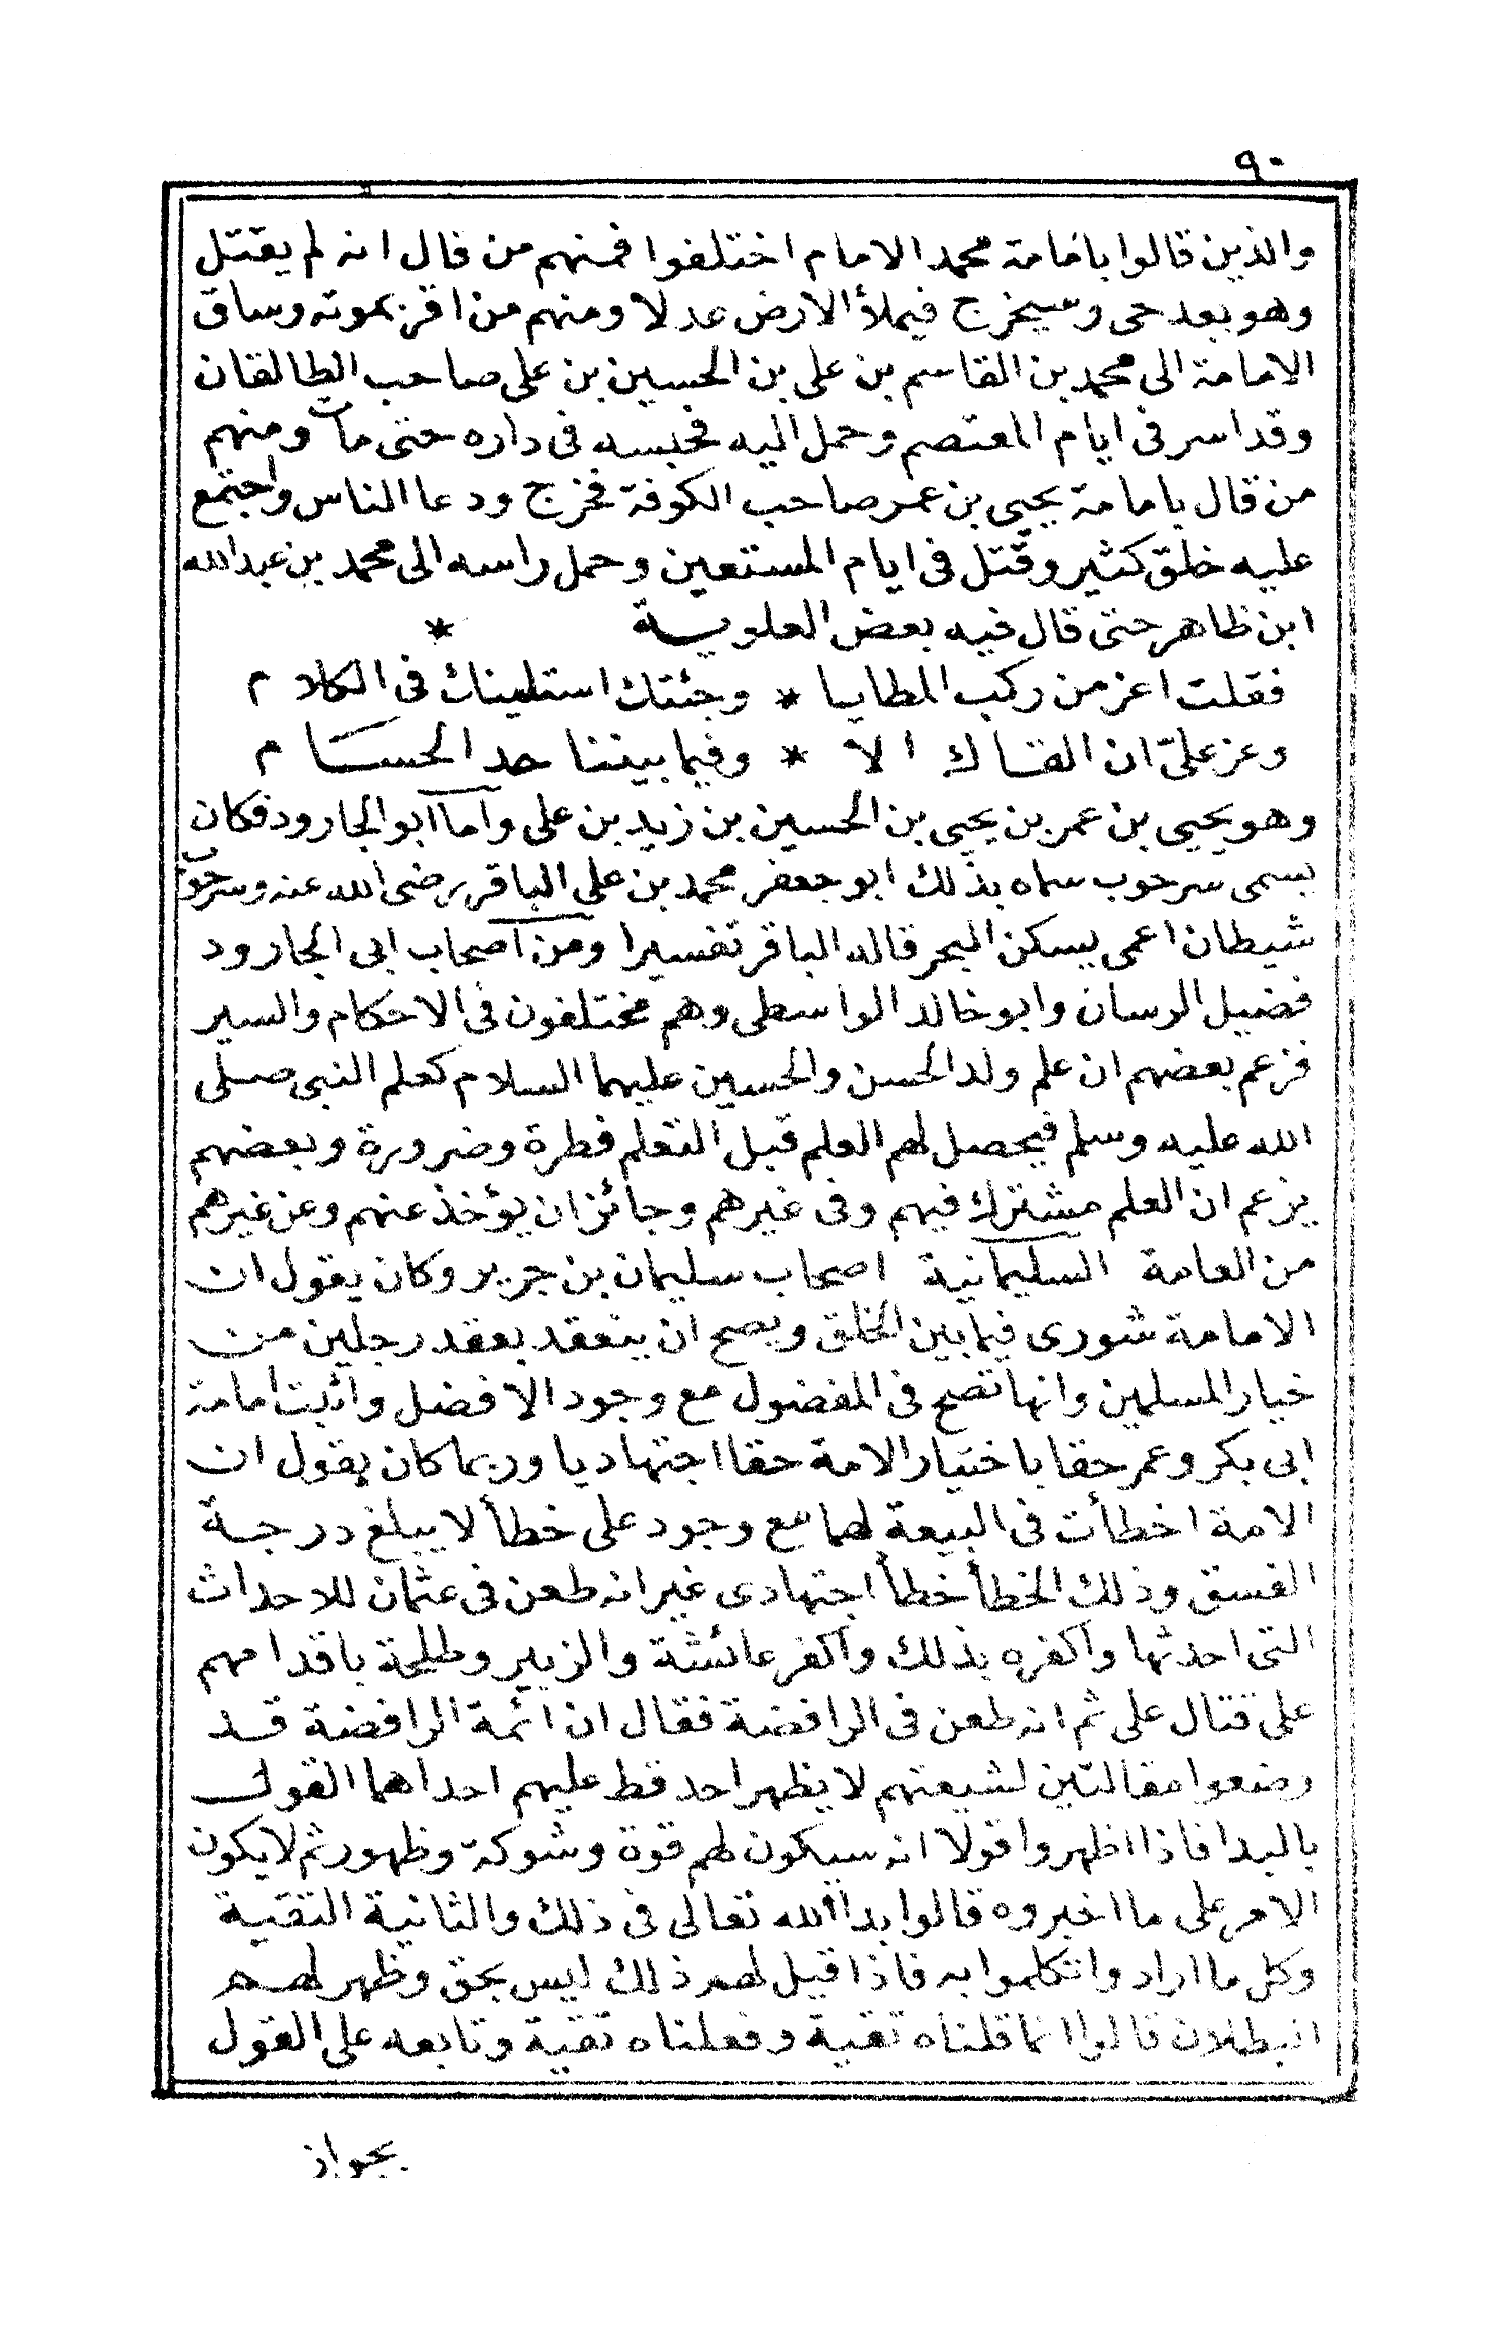 ٩٠
والذين قالوا بامامة محمد الامام اختلفوا فمنهم من قال انه لم يقتل
وهو بعد حى وسيخرج فيملأ الارض عدلا ومنهم من اقر بموته وساق
الامامة الى محمد بن القاسم بن على بن الحسين بن على صاحب الطالقان
وقد اسر فى ايام المعتصم وحمل اليه فحبسه فى داره حتى مات ومنهم
من قال بامامة يحيى بن عمر صاحب الكوفة فخرج ودعا الناس واجتمع
عليه خلق كثير وقتل فى ايام المستعين وحمل راسه الى محمد بن عبدالله
ابن ظاهر حتى قال فيه بعض العلوية *
فقلت اعز من ركب المطايا * وجئتك استلينك فى الكلام
وعز علىّ ان القاك الا * وفيما بيننا حد الحسام
وهو يحيى بن عمر بن يحيى بن الحسين بن زيد بن على واما ابو الجارود فكان
يسمى سرحوب سماه بذلك ابو جعفر محمد بن على الباقر رضى الله عنه وسرحوب
شيطان اعمى يسكن البحر قاله الباقر تفسيرا ومن اصحاب ابى الجارود
فضيل الرسان وابو خالد الواسطى وهم مختلفون فى الاحكام والسير
فزعم بعضهم ان علم ولد الحسن والحسين عليهما السلام كعلم النبى صلى
الله عليه وسلم فيحصل لهم العلم قبل التعلم فطرة وضرورة وبعضهم
يزعم ان العلم مشترك فيهم وفى غيرهم وجائز ان يؤخذ عنهم وعن غيرهم
من العامة السليمانية اصحاب سليمان بن جرير وكان يقول ان
الامامة شورى فيما بين الخلق ويصح ان ينعقد بعقد رجلين من
خيار المسلمين وانها تصح فى المفضول مع وجود الافضل واثبت امامة
ابى بكر وعمر حقا باختيار الامة حقا اجتهاديا وربما كان يقول ان
الامة اخطأت فى البيعة لهما مع وجود على خطأ لا يبلغ درجة
الفسق وذلك الخطأ خطأ اجتهادى غير انه طعن فى عثمان للاحداث
التى احدثها واكفره بذلك واكفر عائشة والزبير وطلحة باقدامهم
على قتال على ثم انه طعن فى الرافضة فقال ان ائمة الرافضة قد
وضعوا مقالتين لشيعتهم لا يظهر احد قط عليهم احداهما القول
بالبدا فاذا اظهروا قولا انه سيكون لهم قوة وشوكة وظهور ثم لا يكون
الامر على ما اخبروه قالوا بدا لله تعالى فى ذلك والثانية التقية
وكل ما اراد واتكلموا به فاذا قيل لهم ذلك ليس بحق وظهر لهم
البطلان قالوا انما قلناه تقية وفعلناه تقية وتابعه على القول
بجواز